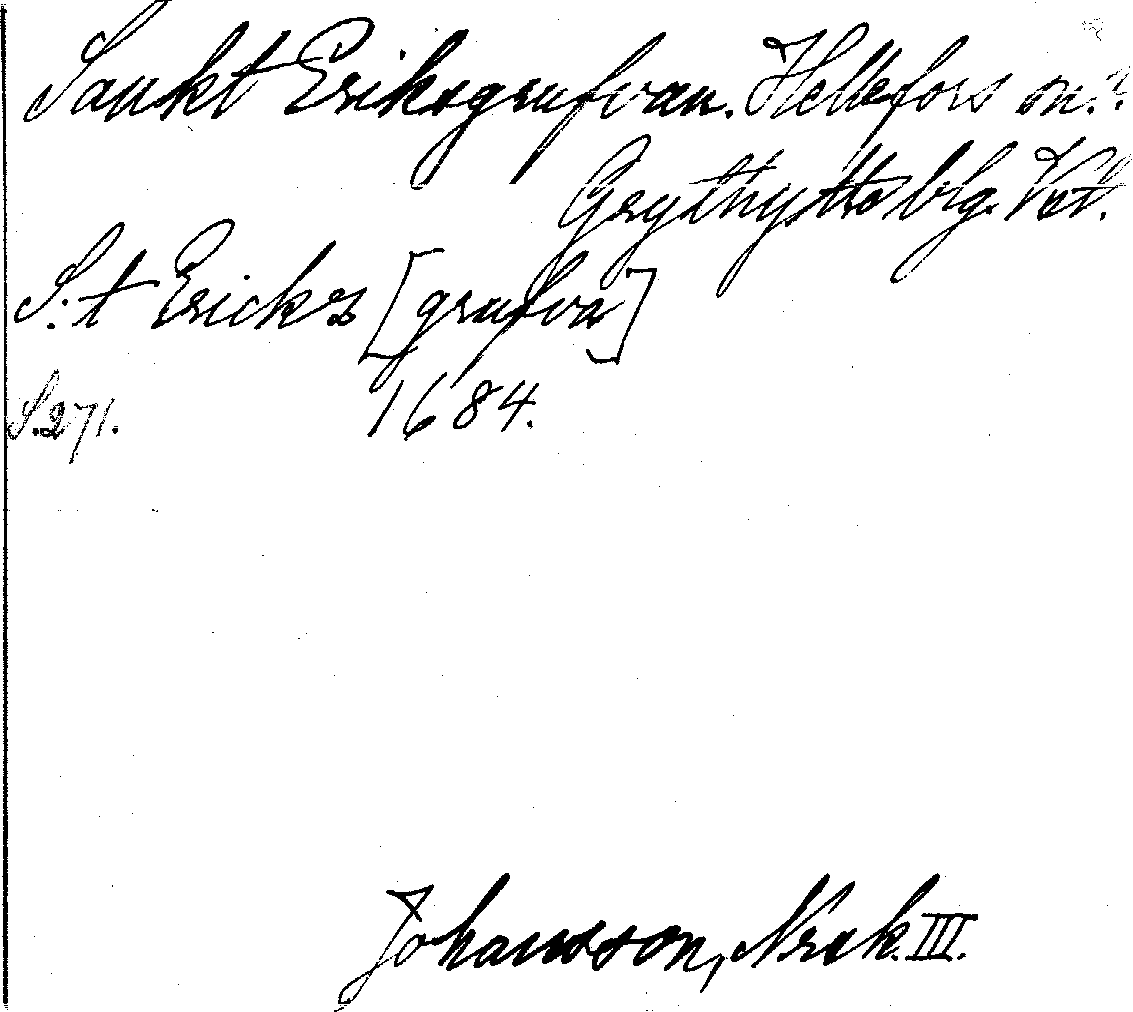 Sankt Eriksgrufvan. Hellefors sn.?
Grythytte blg. Vstl.
S:t Ericks [grufva]
S. 271. 1684.
Johansson, Norak. III.